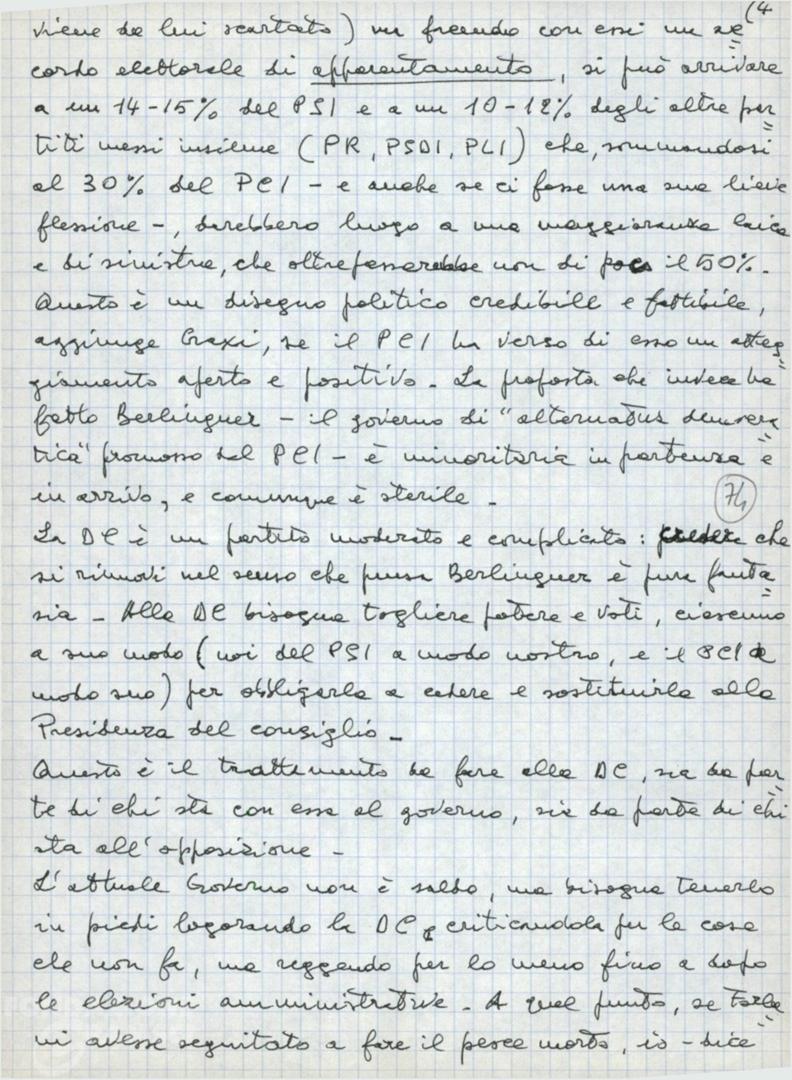 (4
viene da lui scartato) ma facendo con essi un ac=
cordo elettorale di apparentamento, si può arrivare
a un 14-15% del PSI e a un 10-12% degli altri par=
titi messi insieme (PR, PSDI, PLI) che, sommandosi
al 30% del PCI - e anche se ci fosse una sua lieve
flessione -, darebbero luogo a una maggioranza laica
e di sinistra, che oltrepasserebbe non di poco il 50%.
Questo è un disegno politico credibile e fattibile,
aggiunge Craxi, se il PCI ha verso di esso un atteg=
giamento aperto e positivo. La proposta che invece ha
fatto Berlinguer - il governo di "alternativa democra=
tica" promosso dal PCI - è minoritaria in partenza e
in arrivo, e comunque è sterile -
74
La DC è un partito moderato e complicato: credere che
si rinnovi nel senso che pensa Berlinguer è pura fanta=
sia - Alla DC bisogna togliere potere e voti, ciascuno
a suo modo (noi del PSI a modo nostro, e il PCI a
modo suo) per obbligarla a cedere e sostituirla alla
Presidenza del consiglio -
Questo è il trattamento da fare alla DC, sia da par=
te di chi sta con essa al governo, sia da parte di chi
sta all'opposizione -
L'attuale Governo non è saldo, ma bisogna tenerlo
in piedi logorando la DC, criticandola per le cose
che non fa, ma reggendo per lo meno fino a dopo
le elezioni amministrative - A quel punto, se Forla=
ni avesse seguitato a fare il pesce morto, io - dice